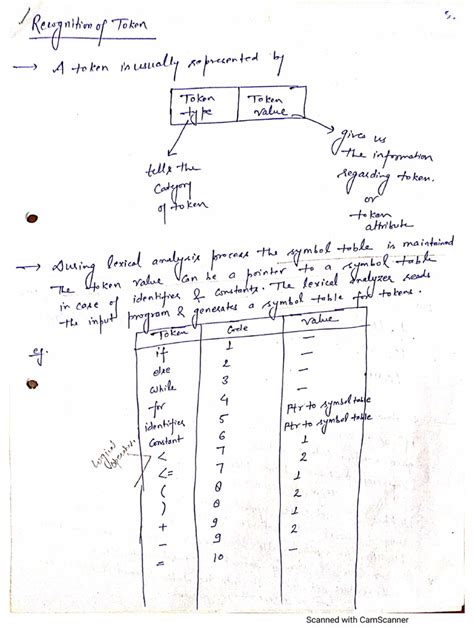 5.
Recognition of Token
→ A token is usually represented by
Token type | Token value
tells the
Category
of token
gives us
the information
regarding token.
or
token
attribute
→ During lexical analysis process the symbol table is maintained
The token value can be a pointer to a symbol table
in case of identifier & constants. The lexical analyzer reads
the input program & generates a symbol table for tokens.
eg.
Token Code Value
if 1 —
else 2 —
while 3 —
for 4 —
identifier 5 Ptr to symbol table
Constant 6 Ptr to symbol table
< 7 1
<= 7 2
( 8 1
) 8 2
+ 9 1
- 9 2
= 10 —
Scanned with CamScanner